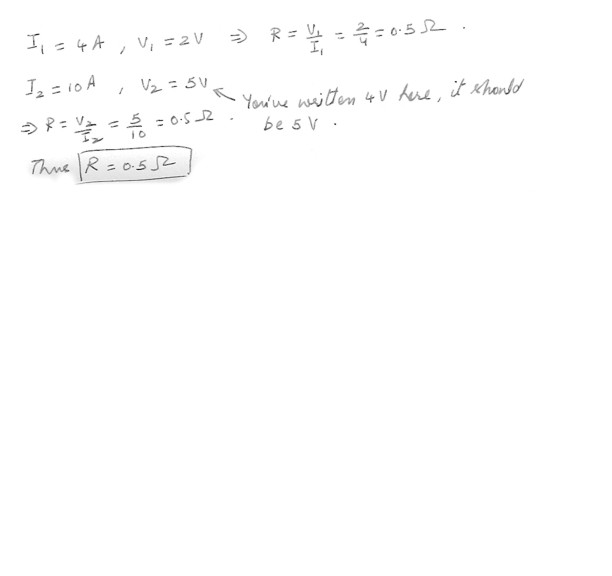 I₁ = 4 A , V₁ = 2V ⇒ R = V₁/I₁ = 2/4 = 0.5 Ω .
I₂ = 10 A , V₂ = 5V
You've written 4V here, it should
be 5V .
⇒ R = V₂/I₂ = 5/10 = 0.5 Ω .
Thus R = 0.5 Ω